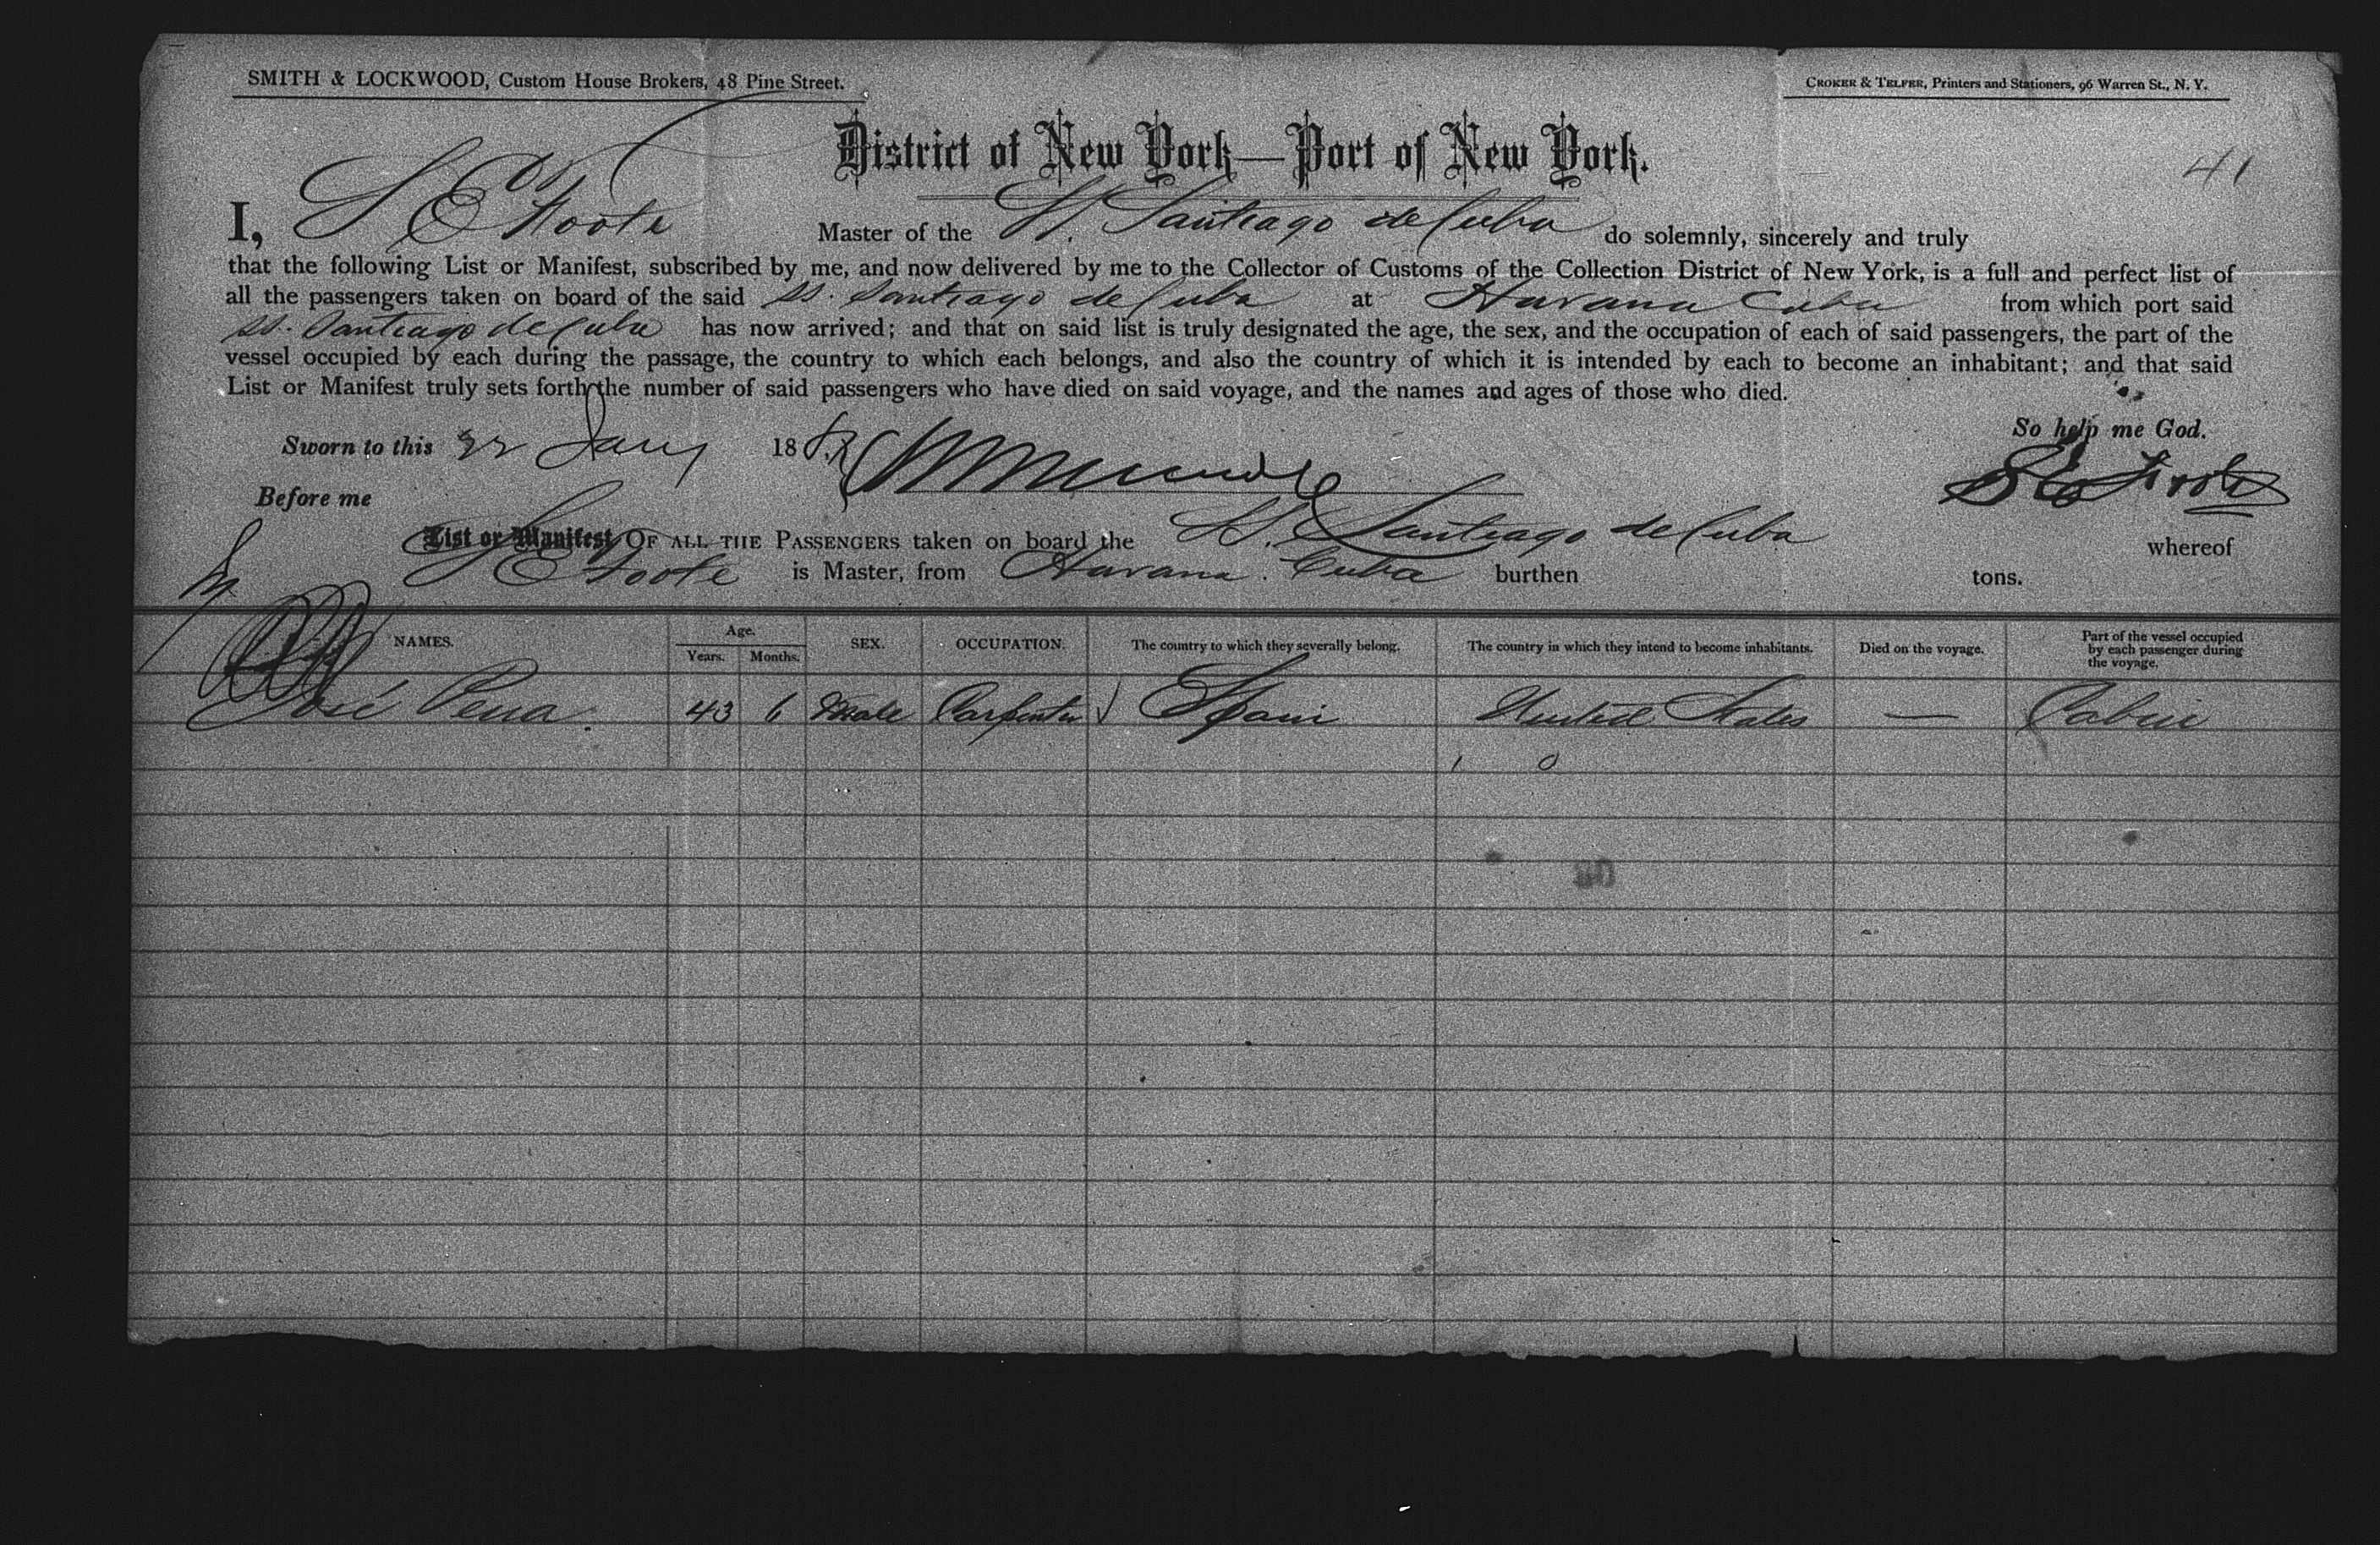 SMITH & LOCKWOOD, Custom House Brokers, 48 Pine Street.
CROKER & TELFER, Printers and Stationers, 96 Warren St., N. Y.
District of New York—Port of New York.
41
I, S E Foote Master of the SS. Santiago de Cuba do solemnly, sincerely and truly
that the following List or Manifest, subscribed by me, and now delivered by me to the Collector of Customs of the Collection District of New York, is a full and perfect list of
all the passengers taken on board of the said SS. Santiago de Cuba at Havana Cuba from which port said
SS. Santiago de Cuba has now arrived; and that on said list is truly designated the age, the sex, and the occupation of each of said passengers, the part of the
vessel occupied by each during the passage, the country to which each belongs, and also the country of which it is intended by each to become an inhabitant; and that said
List or Manifest truly sets forth the number of said passengers who have died on said voyage, and the names and ages of those who died.
So help me God.
Sworn to this 22 Jany 188
S E Foote
Before me
List or Manifest OF ALL THE PASSENGERS taken on board the SS. Santiago de Cuba whereof
S E Foote is Master, from Havana. Cuba burthen tons.
NAMES. Age. Years. Months. SEX. OCCUPATION. The country to which they severally belong. The country in which they intend to become inhabitants. Died on the voyage. Part of the vessel occupied by each passenger during the voyage.
José Pena. 43 6 Male Carpenter Spain United States — Cabin